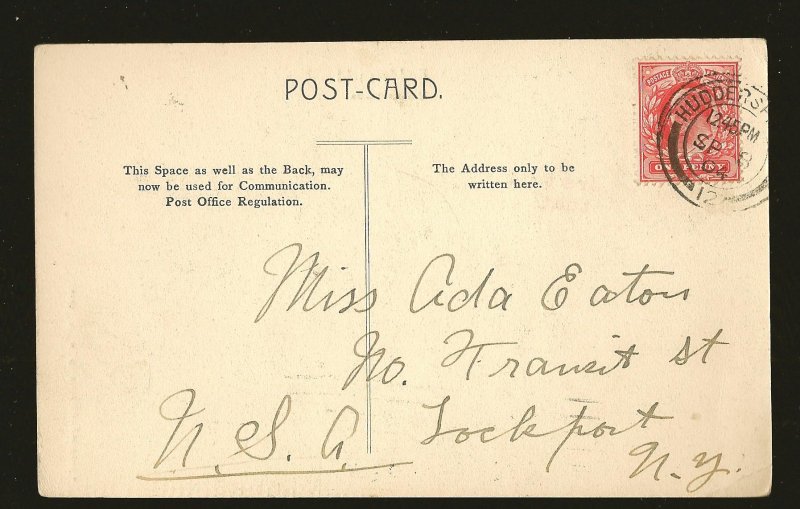 POST-CARD.
This Space as well as the Back, may
now be used for Communication.
Post Office Regulation.
The Address only to be
written here.
POSTAGE
ONE PENNY
HUDDERSF
12 45 PM
SP 8
12
Miss Ada Eaton
No. Transit St
Lockport
N.Y.
U.S.A.